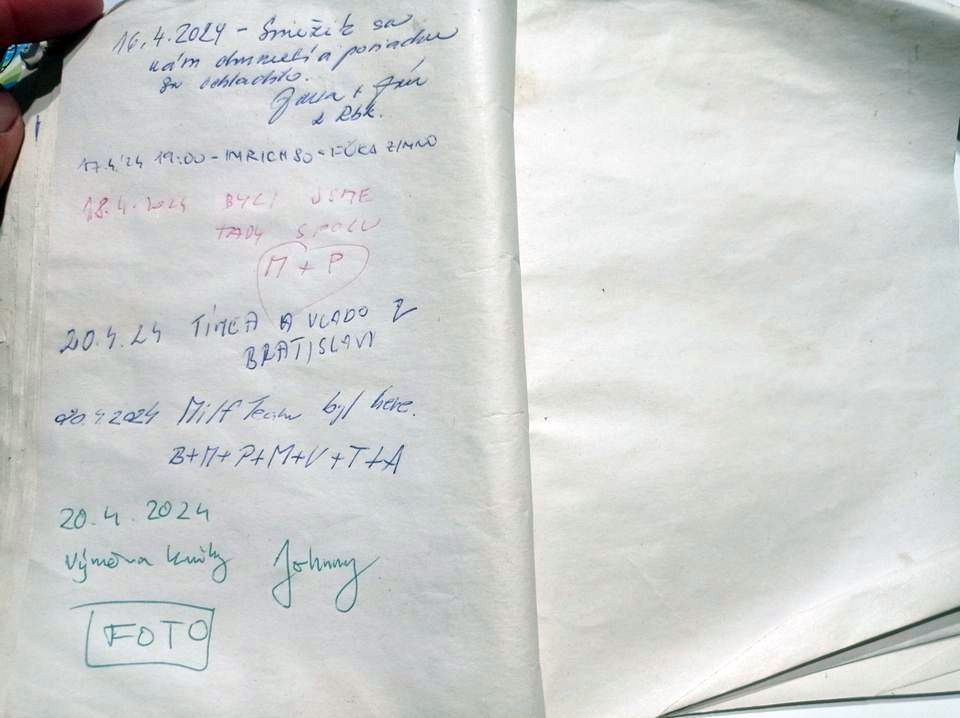 16.4.2024 - Smežik sa
nám a poriadne
sa ochladilo.
Jana + Ján
z Rbk.
17.4.'24 19:00 - IMRICH 80 - FÚKA ZIMNO
18.4.2024 BYLI JSME
TADY SPOLU
M + P
20.4.24 TÍMEA A VLADO Z
BRATISLAVY
20.4.2024 Milf Team byl here.
B+M+P+M+V+T+A
20.4.2024
Výměna knihy Johnny
FOTO